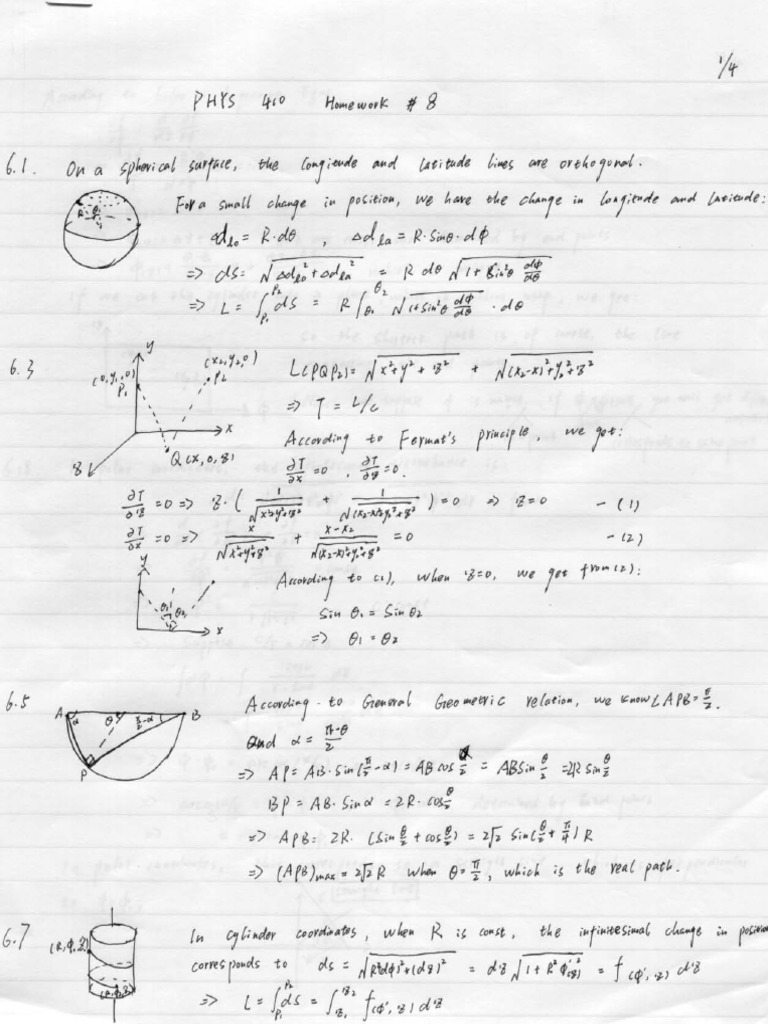 1/4
PHYS 410 Homework # 8
6.1. On a spherical surface, the longitude and latitude lines are orthogonal.
For a small change in position, we have the change in longitude and latitude:
Δd_lo = R·dθ , Δd_la = R·sinθ·dϕ
⇒ dS = √(Δd_lo² + Δd_la²) = R dθ √(1 + sin²θ dϕ/dθ)
⇒ L = ∫_P₁^P₂ dS = R ∫_θ₁^θ₂ √(1+sin²θ dϕ/dθ) · dθ
6.3
y
(0, y₁, 0)
P₁
(x₂, y₂, 0)
P₂
x
z
Q (x, 0, z)
L(P₁QP₂) = √(x²+y²+z²) + √((x₂-x)²+y₂²+z²)
⇒ T = L/c
According to Fermat's principle, we get:
∂T/∂x = 0 , ∂T/∂z = 0.
∂T/∂z = 0 ⇒ z·( 1/√(x²+y²+z²) + 1/√((x₂-x)²+y₂²+z²) ) = 0 ⇒ z = 0 – (1)
∂T/∂x = 0 ⇒ x/√(x²+y²+z²) + x-x₂/√((x₂-x)²+y₂²+z²) = 0 – (2)
y
θ₁ θ₂
x
According to (1), when z=0, we get from (2):
sin θ₁ = sin θ₂
⇒ θ₁ = θ₂
6.5
A α θ π/2-α B
P
According to General Geometric relation, we know ∠APB = π/2.
and α = π-θ/2
⇒ AP = AB·sin(π/2-α) = AB cos α = AB sin θ/2 = 2R sin θ/2
BP = AB·sinα = 2R·cos θ/2
⇒ APB = 2R·(sin θ/2 + cos θ/2) = 2√2 sin(θ/2 + π/4) R
⇒ (APB)max = 2√2 R when θ = π/2, which is the real path.
6.7
(R, ϕ, z)
In cylinder coordinates, when R is const, the infinitesimal change in position
corresponds to ds = √((R²dϕ)²+(dz)²) = dz √(1+R²ϕ'²(z)) = f(ϕ', z) dz
⇒ L = ∫_P₁^P₂ dS = ∫_z₁^z₂ f(ϕ', z) dz